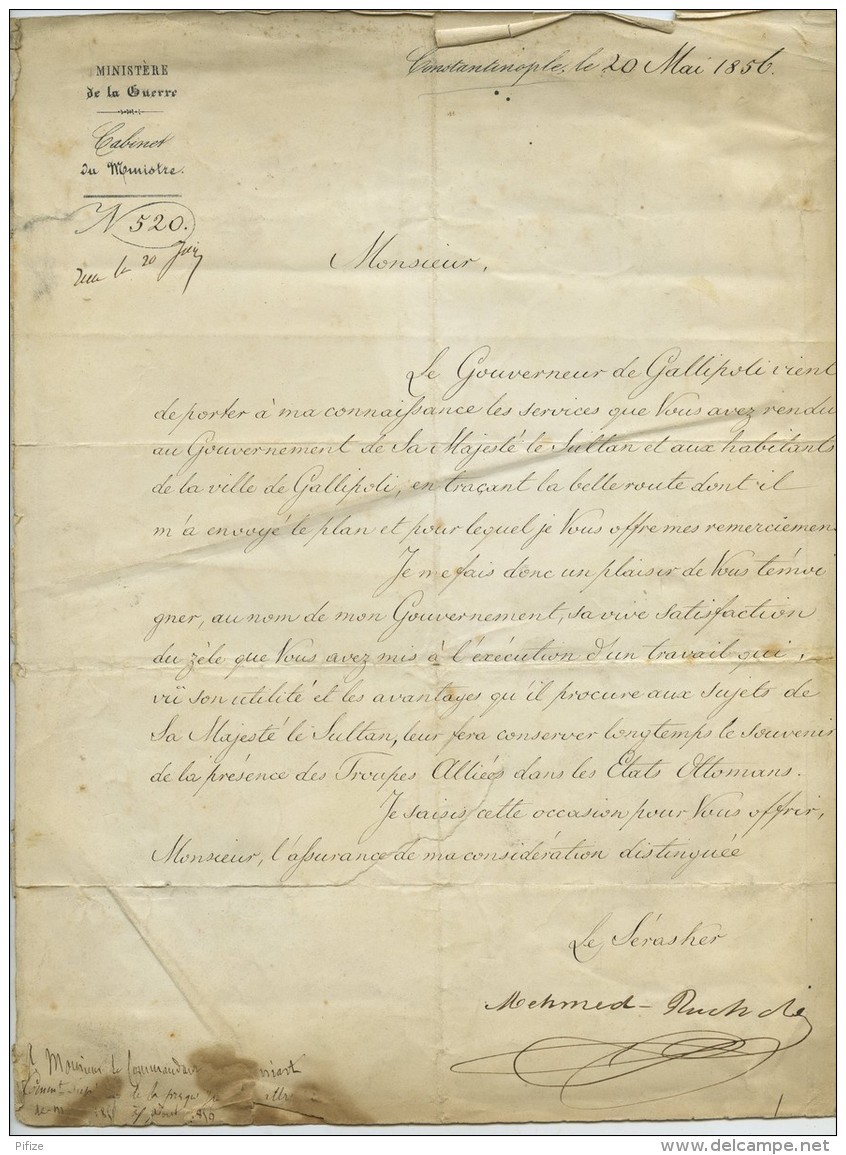 MINISTÈRE
de la Guerre
Cabinet
du Ministre.
N 520.
le 20 Juin
Constantinople, le 20 Mai 1856.
Monsieur,
Le Gouverneur de Gallipoli vient
de porter à ma connaissance les services que Vous avez rendu
au Gouvernement de Sa Majesté le Sultan et aux habitants
de la ville de Gallipoli, en traçant la belle route dont il
m'a envoyé le plan et pour lequel je Vous offre mes remerciemen
Je me fais donc un plaisir de Vous témoi
gner, au nom de mon Gouvernement, sa vive satisfaction
du zèle que Vous avez mis à l'éxécution d'un travail qui,
vü son utilité et les avantages qu'il procure aux sujets de
Sa Majesté le Sultan, leur fera conserver longtemps le souvenir
de la présence des Troupes Alliées dans les Etats Ottomans.
Je saisis cette occasion pour Vous offrir,
Monsieur, l'assurance de ma considération distinguée
Le Sérasker
Mehmed-Ruchdi
Monsieur le Commandant
de la
Pifize
www.delcampe.net